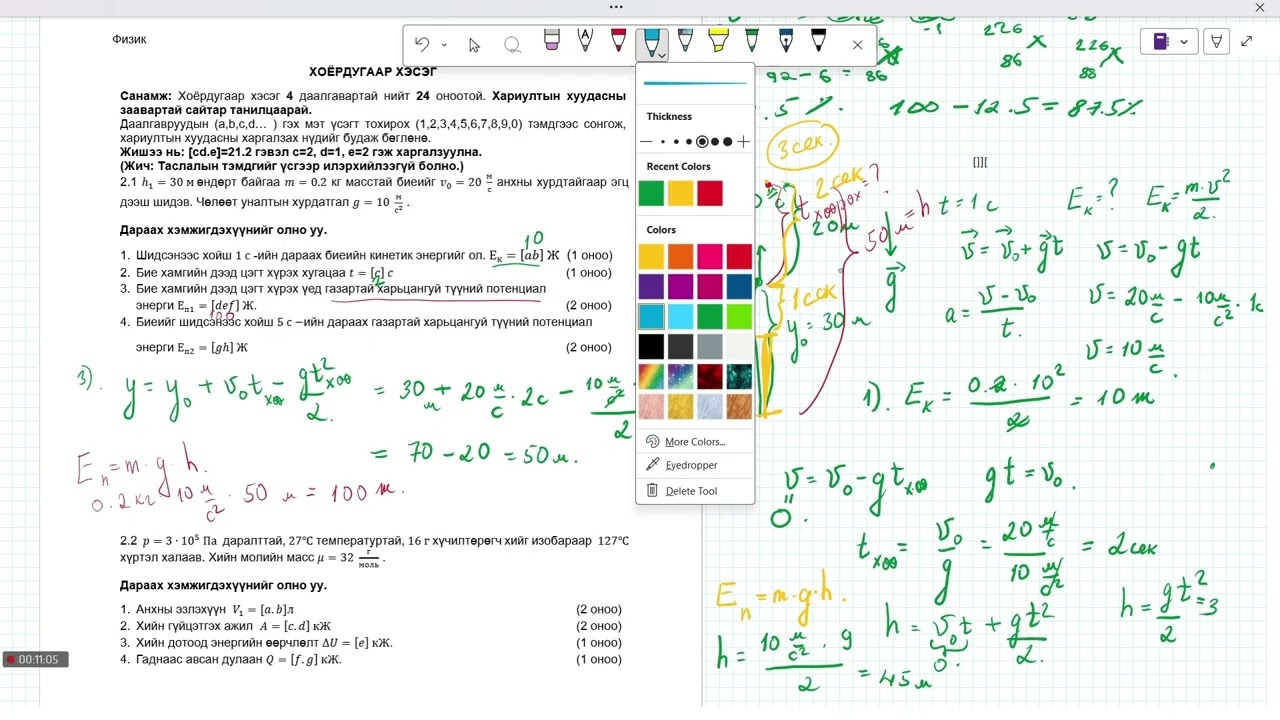 Физик
ХОЁРДУГААР ХЭСЭГ
Санамж: Хоёрдугаар хэсэг 4 даалгавартай нийт 24 оноотой. Хариултын хуудасны
заавартай сайтар танилцаарай.
Даалгавруудын (a,b,c,d... ) гэх мэт үсэгт тохирох (1,2,3,4,5,6,7,8,9,0) тэмдгээс сонгож,
хариултын хуудасны харгалзах нүдийг будаж бөглөнө.
Жишээ нь: [cd.e]=21.2 гэвэл c=2, d=1, e=2 гэж харгалзуулна.
(Жич: Таслалын тэмдгийг үсгээр илэрхийлээгүй болно.)
2.1 h₁ = 30 м өндөрт байгаа m = 0.2 кг масстай биейиг v₀ = 20 м/с анхны хурдтайгаар эгц
дээш шидэв. Чөлөөт уналтын хурдатгал g = 10 м/с² .
Дараах хэмжигдэхүүнийг олно уу.
10
1. Шидсэнээс хойш 1 с -ийн дараах биейин кинетик энергийг ол. Eк = [ab] Ж (1 оноо)
2. Бие хамгийн дээд цэгт хүрэх хугацаа t = [c] с (1 оноо)
2
3. Бие хамгийн дээд цэгт хүрэх үед газартай харьцангуй түүний потенциал
энерги Eп1 = [def] Ж. (2 оноо)
100
4. Биеийг шидсэнээс хойш 5 с –ийн дараах газартай харьцангуй түүний потенциал
энерги Eп2 = [gh] Ж (2 оноо)
3). y = y₀ + v₀t хөө − gt²хөө/2. = 30м + 20 м/с · 2с − 10 м/с²/2
= 70 − 20 = 50 м.
Eп = m · g · h.
0.2кг 10 м/с² · 50 м = 100 Ж.
2.2 p = 3 · 10⁵ Па даралттай, 27℃ температуртай, 16 г хүчилтөрөгч хийг изобараар 127℃
хүртэл халаав. Хийн молийн масс μ = 32 г/моль .
Дараах хэмжигдэхүүнийг олно уу.
1. Анхны эзлэхүүн V₁ = [a.b]л (2 оноо)
2. Хийн гүйцэтгэх ажил A = [c.d] кЖ (2 оноо)
3. Хийн дотоод энергийн өөрчлөлт ΔU = [e] кЖ. (1 оноо)
4. Гаднаас авсан дулаан Q = [f.g] кЖ. (1 оноо)
00:11:05
Thickness
Recent Colors
Colors
More Colors...
Eyedropper
Delete Tool
-1
226
86
226
88
92 − 6 = 86
.5 %. 100 − 12.5 = 87.5%
3 сек.
[]][
2 сек
20м
50 м = h
1 сек
y₀ = 30 м
g
t = 1 с Eк = ? Eк = m·v²/2.
v = v₀ + gt v = v₀ − gt
a = v − v₀/t. v = 20 м/с − 10 м/с² · 1с
v = 10 м/с.
1). Eк = 0.2 · 10²/2 = 10 Ж
v = v₀ − gt хөө gt = v₀.
0.
t хөө = v₀/g = 20 м/с/10 м/с² = 2 сек
Eп = m·g·h.
h = v₀t + gt²/2.
0.
h = gt²/2 = 3
h = 10 м/с² · 9/2 = 45 м